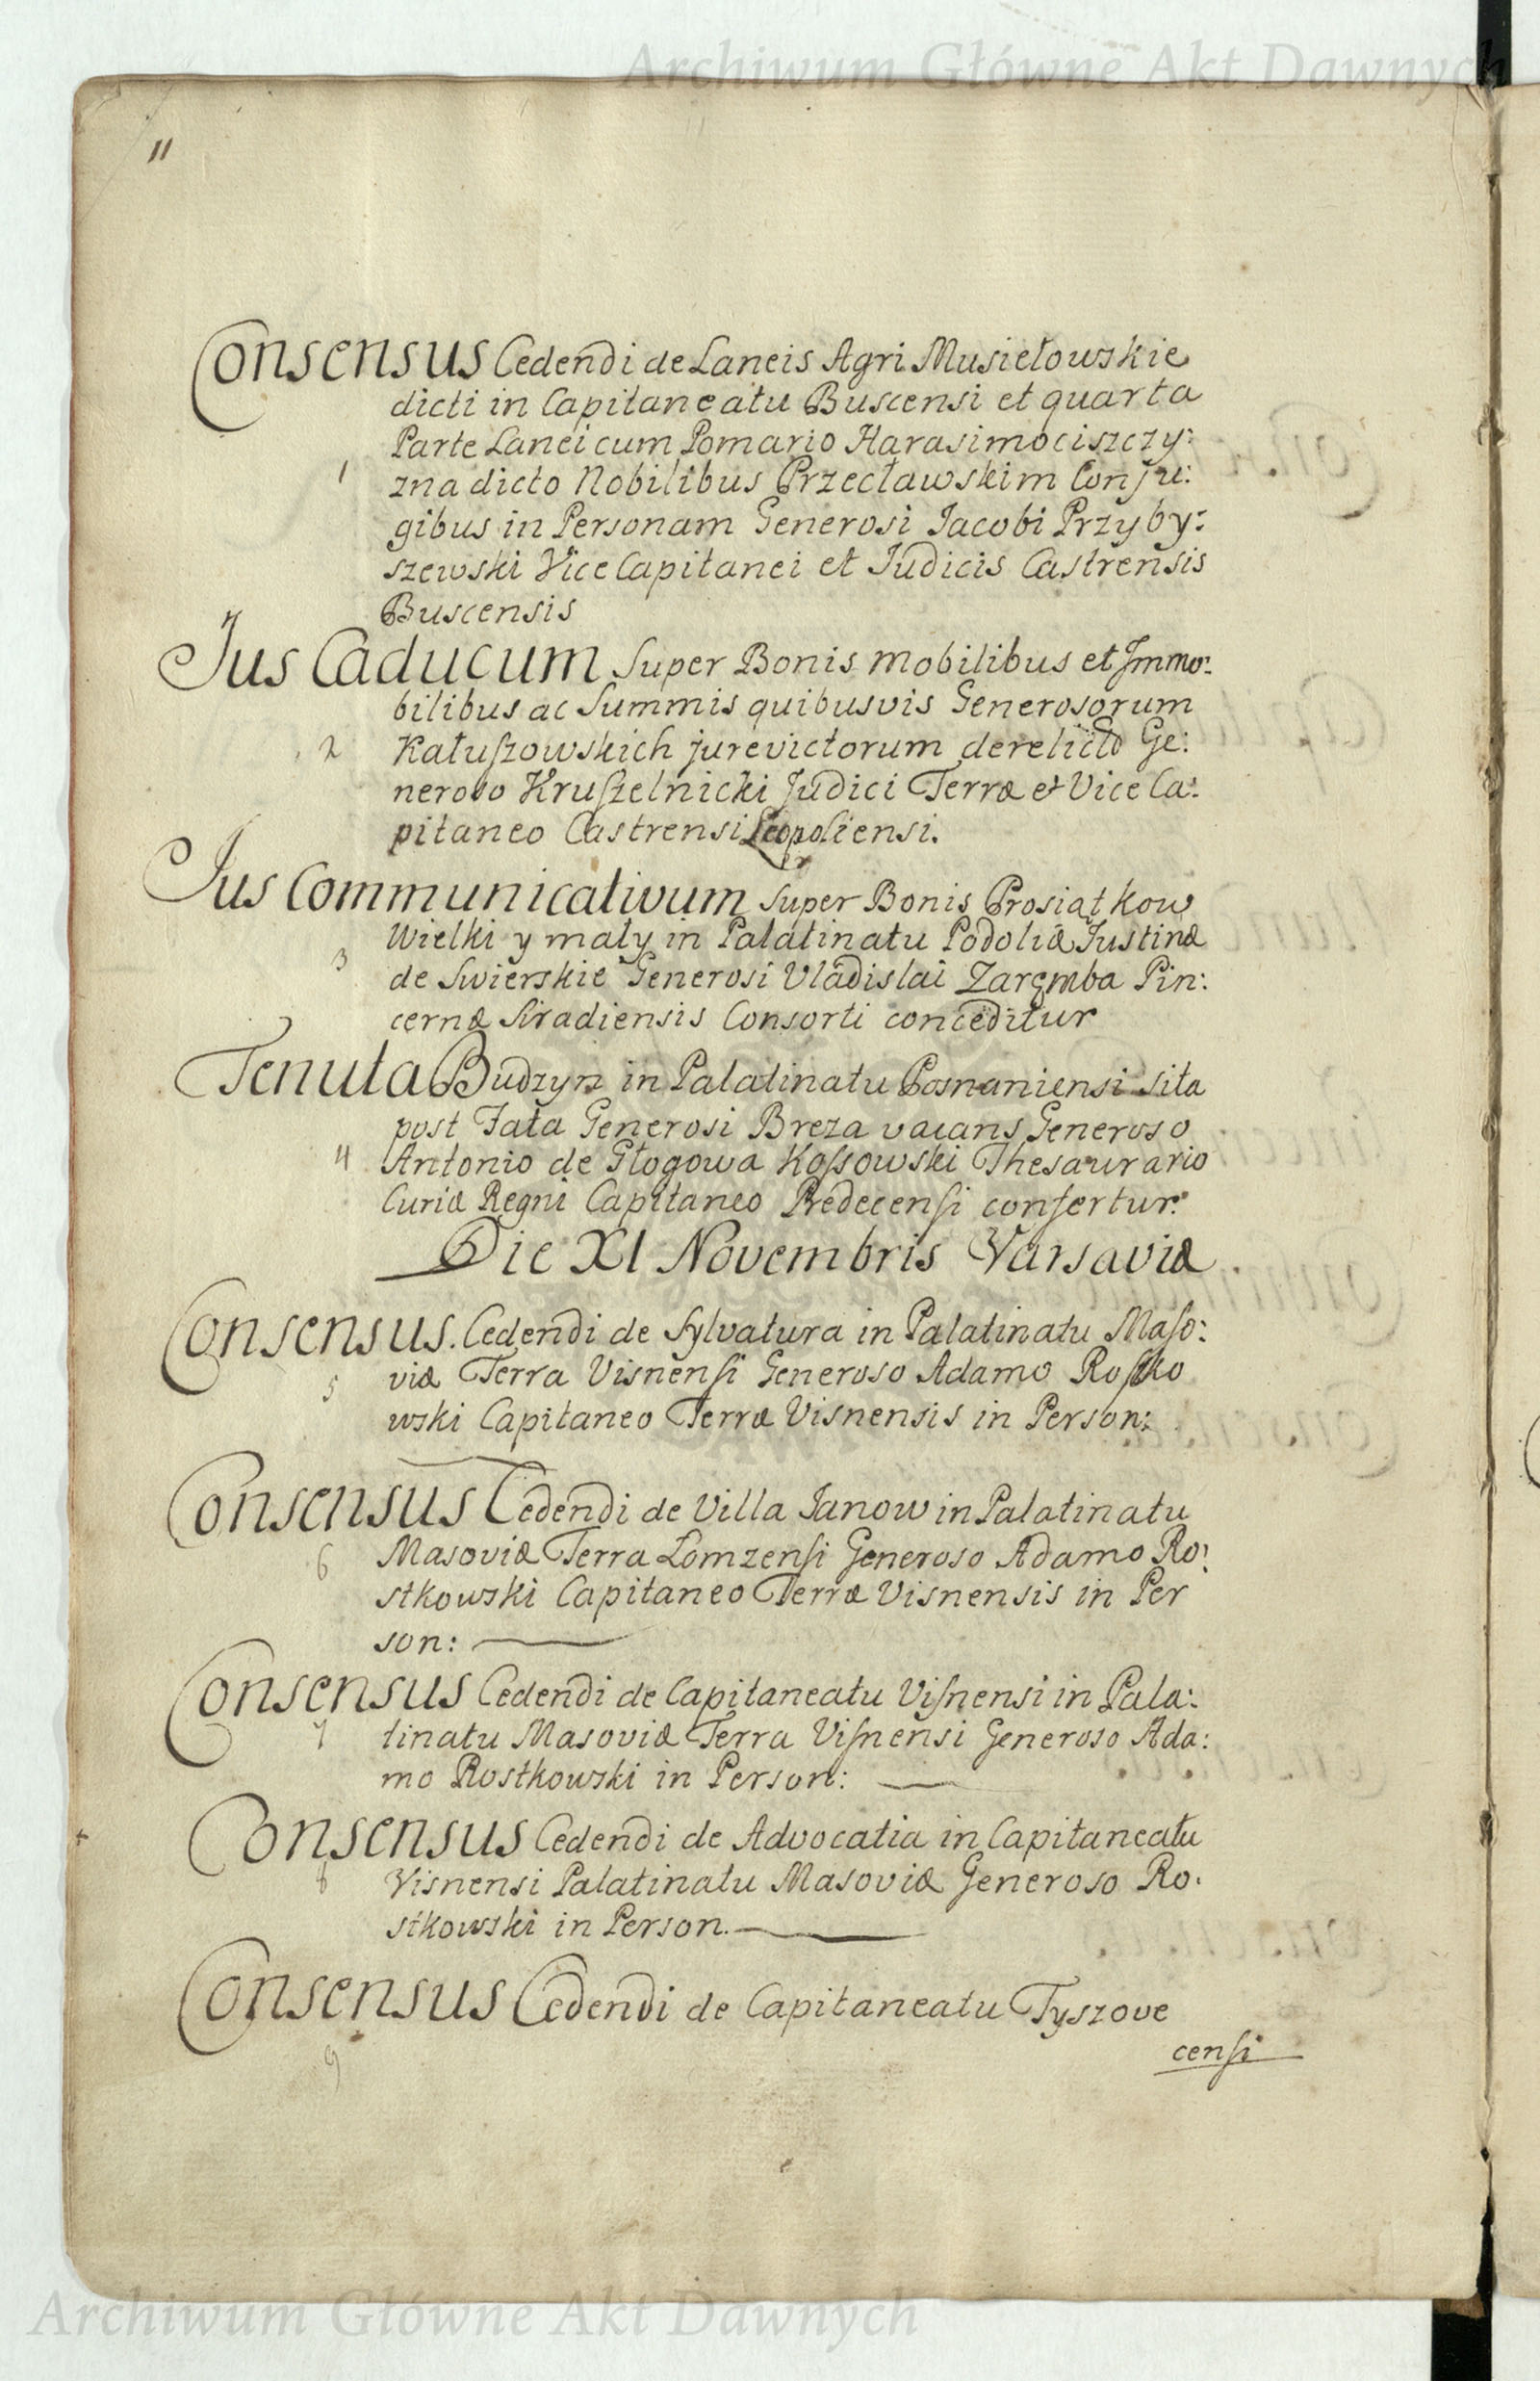 Archiwum Główne Akt Dawnych
11
Consensus Cedendi de Laneis Agri Musiełowskie
dicti in Capitaneatu Buscensi et quarta
Parte Lanei cum Pomario Harasimociszczy:
1
zna dicto Nobilibus Przecławskim Conju:
gibus in Personam Generosi Jacobi Przyby:
szewski Vice Capitanei et Judicis Castrensis
Buscensis
Jus Caducum Super Bonis mobilibus et Immo:
bilibus ac Summis quibusvis Generosorum
2
Katuszowskich jurevictorum derelicto Ge:
neroso Kruszelnicki Judici Terræ et Vice Ca:
pitaneo Castrensi Leopoliensi.
Jus Communicativum Super Bonis Prosiatkow
Wielki y mały in Palatinatu Podoliæ Justinæ
3
de Swierskie Generosi Vladislai Zaręmba Pin:
cernæ Siradiensis Consorti conceditur
Tenuta Budzyn in Palatinatu Posnaniensi sita
post Fata Generosi Breza vacans Generoso
4
Antonio de Głogowa Kossowski Thesaurario
Curiæ Regni Capitaneo Predecensi confertur.
Die XI Novembris Varsaviæ
Consensus. Cedendi de Sylvatura in Palatinatu Maso:
5
viæ Terra Visnensi Generoso Adamo Rostko
wski Capitaneo Terræ Visnensis in Person:
Consensus Cedendi de Villa Janow in Palatinatu
6
Masoviæ Terra Lomzensi Generoso Adamo Ro:
stkowski Capitaneo Terræ Visnensis in Per
son:
Consensus Cedendi de Capitaneatu Visnensi in Pala:
7
tinatu Masoviæ Terra Visnensi Generoso Ada:
mo Rostkowski in Person:
Consensus Cedendi de Advocatia in Capitaneatu
8
Visnensi Palatinatu Masoviæ Generoso Ro:
stkowski in Person.
Consensus Cedendi de Capitaneatu Tyszove
9
censi
Archiwum Główne Akt Dawnych